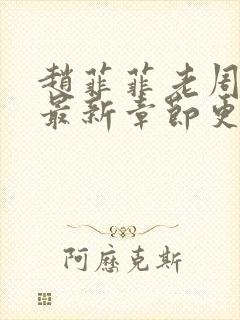 趙菲菲老周
最新章節更
阿歷克斯